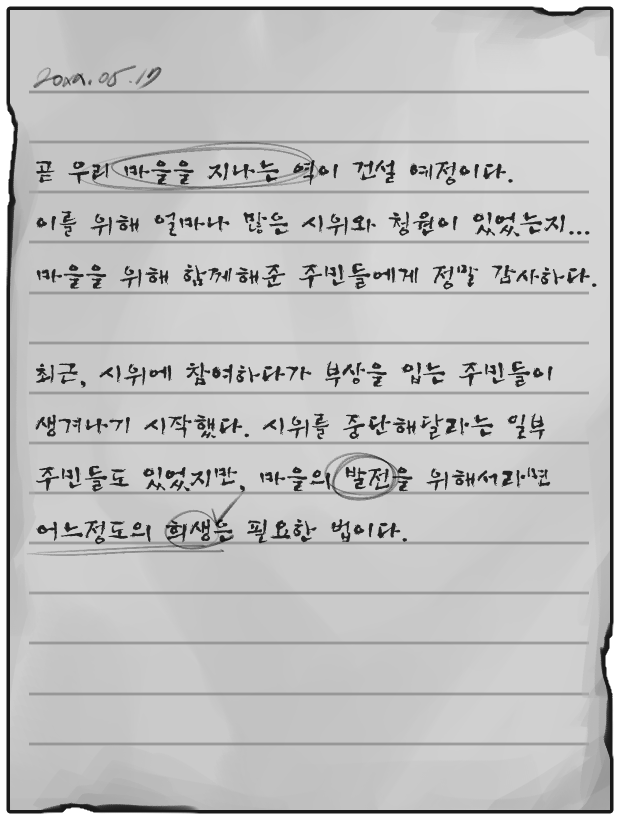 20xx.05.17
곧 우리 마을을 지나는 역이 건설 예정이다.
이를 위해 얼마나 많은 시위와 청원이 있었는지...
마을을 위해 함께해준 주민들에게 정말 감사하다.
최근, 시위에 참여하다가 부상을 입는 주민들이
생겨나기 시작했다. 시위를 중단해달라는 일부
주민들도 있었지만, 마을의 발전을 위해서라면
어느정도의 희생은 필요한 법이다.